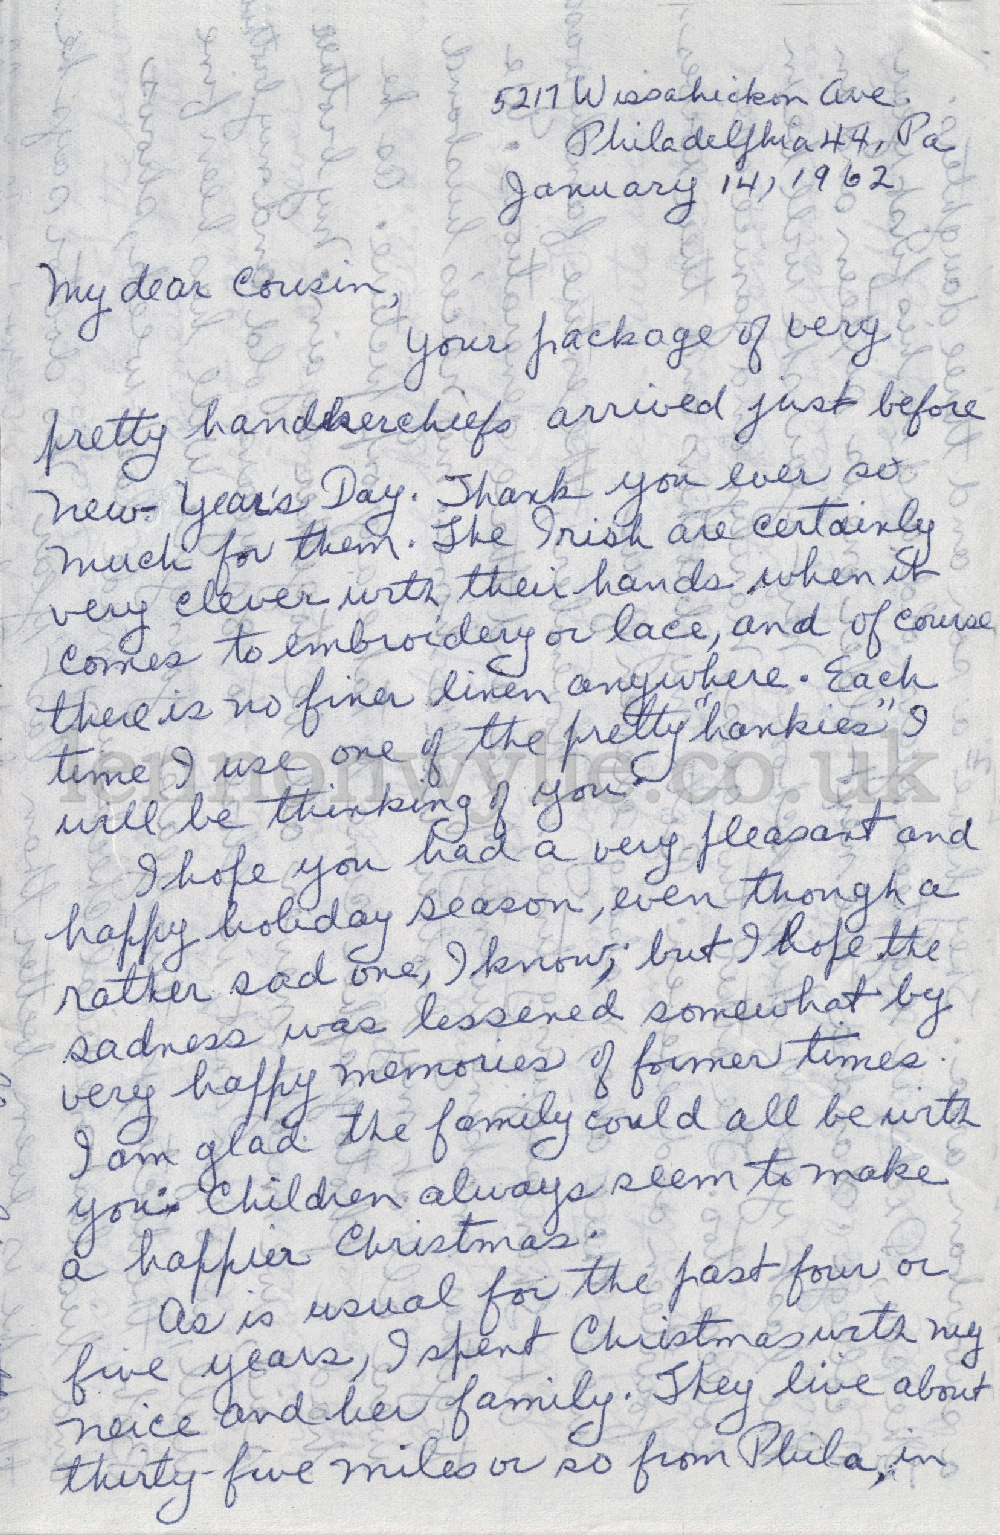 5217 Wissahickon Ave.
Philadelphia 44, Pa
January 14, 1962
My dear Cousin,
Your package of very
pretty handkerchiefs arrived just before
New Year's Day. Thank you ever so
much for them. The Irish are certainly
very clever with their hands when it
comes to embroidery or lace, and of course
there is no finer linen anywhere. Each
time I use one of the pretty "hankies" I
will be thinking of you.
lennonwylie.co.uk
I hope you had a very pleasant and
happy holiday season, even though a
rather sad one, I know; but I hope the
sadness was lessened somewhat by
very happy memories of former times.
I am glad the family could all be with
you. Children always seem to make
a happier Christmas.
As is usual for the past four or
five years, I spent Christmas with my
neice and her family. They live about
thirty-five miles or so from Phila, in